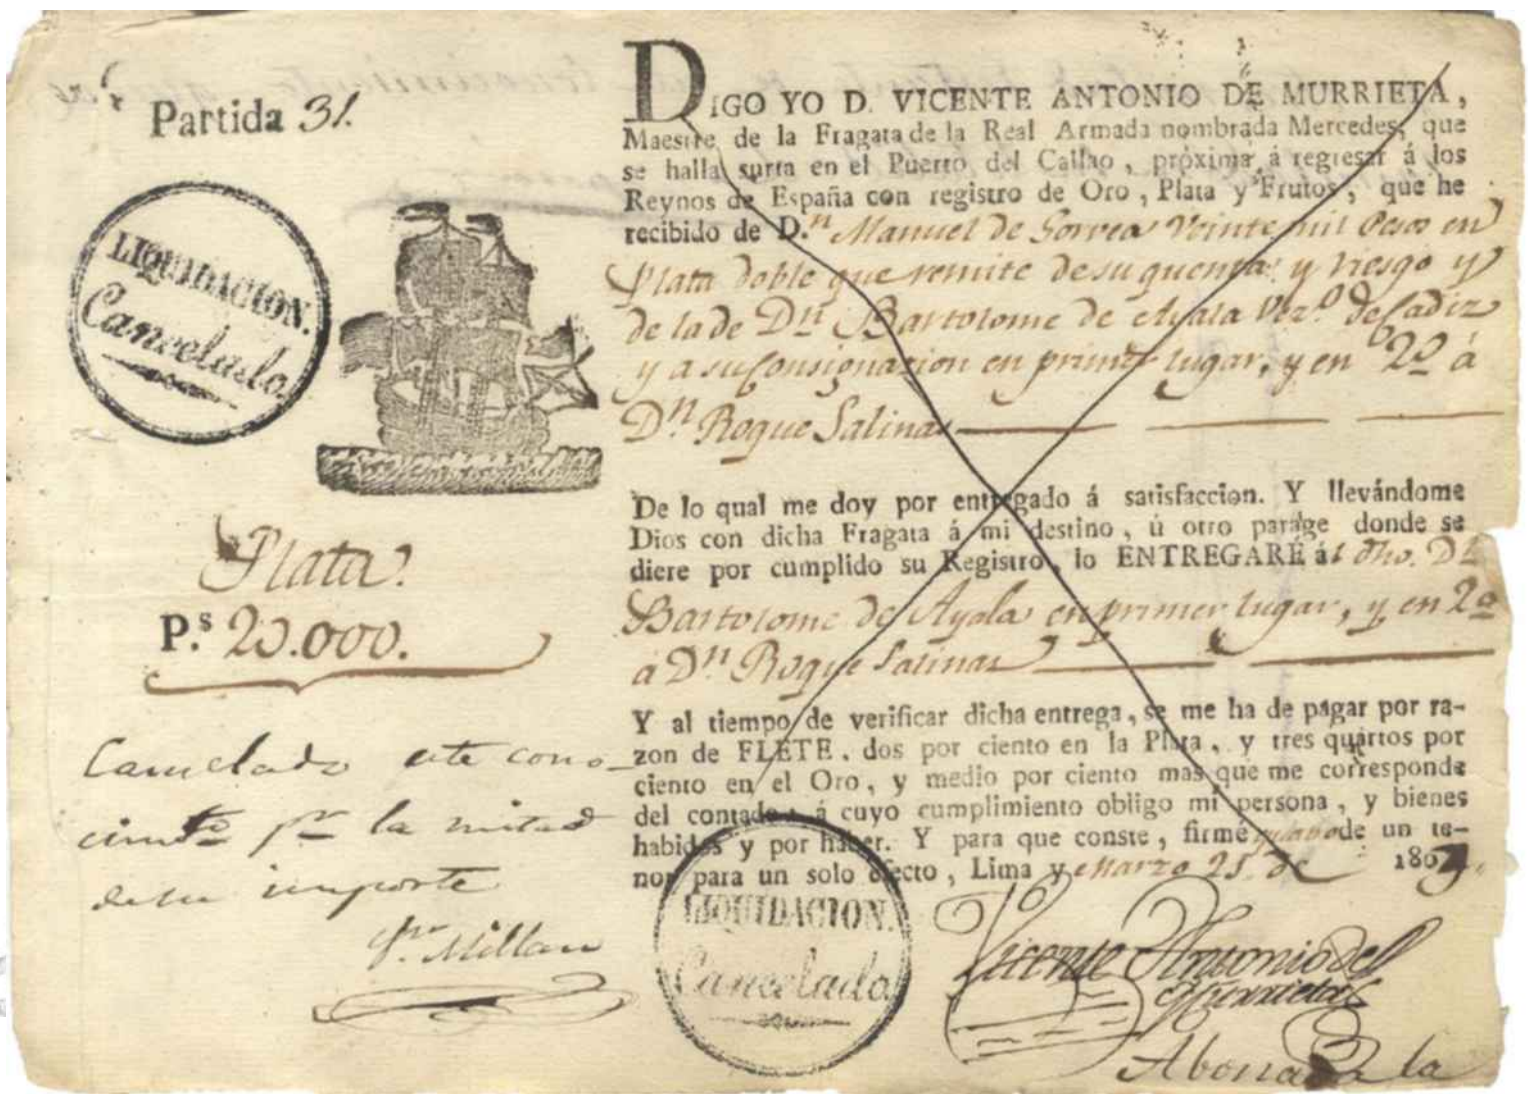 Partida 31.
LIQUIDACION.
Cancelado.
DIGO YO D. VICENTE ANTONIO DE MURRIETA,
Maestre de la Fragata de la Real Armada nombrada Mercedes, que
se halla surta en el Puerto del Callao, próxima á regresar á los
Reynos de España con registro de Oro, Plata y Frutos, que he
recibido de D.n Manuel de Gorvea Veinte mil Pesos en
Plata doble que remite de su quenta y riesgo y
de la de Dn Bartolome de Ayala Vez.o de Cadiz
y a su Consignacion en primer lugar, y en 2o á
Dn Roque Salinas
Plata.
P.s 20.000.
De lo qual me doy por entregado á satisfaccion. Y llevándome
Dios con dicha Fragata á mi destino, ú otro parage donde se
diere por cumplido su Registro, lo ENTREGARÉ ál dho. Dn
Bartolome de Ayala en primer lugar, y en 2o
á Dn Roque Salinas
Y al tiempo de verificar dicha entrega, se me ha de pagar por ra-
zon de FLETE, dos por ciento en la Plata, y tres quartos por
ciento en el Oro, y medio por ciento mas que me corresponde
del contado; á cuyo cumplimiento obligo mi persona, y bienes
habidos y por haber. Y para que conste, firmé de un te-
nor para un solo efecto, Lima y Marzo 25 de 180
Cancelado este cono-
cimto pr la mitad
de su importe
Millan
LIQUIDACION.
Cancelado
Vicente Antonio de
Murrieta
Abonada la